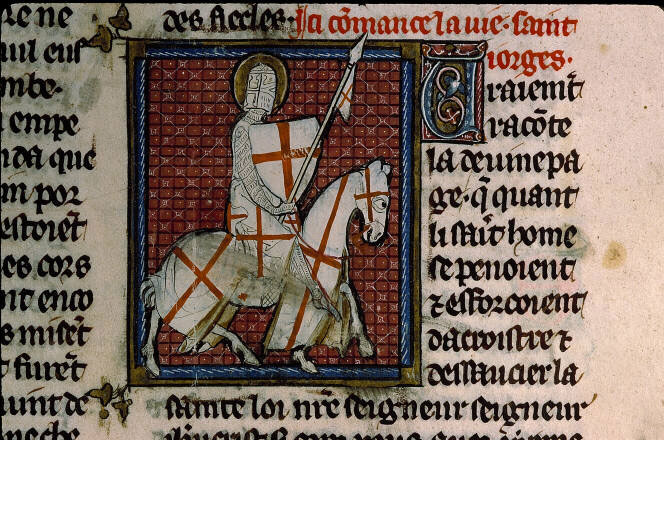 uil eus
mbe.
empe
nda que
m por
estoiēt
es cors
nt enco
s misēt
furēt
uint de
des siecles. Ici cōmance la uie. saint
iorges.
Uraiemt̄
racōte
la deuine pa
ge. q̄ quant
li saīt home
se penoient
⁊ esforcoient
dacroistre ⁊
dessaucier la
sainte loi nr̄e seigneur seigneur